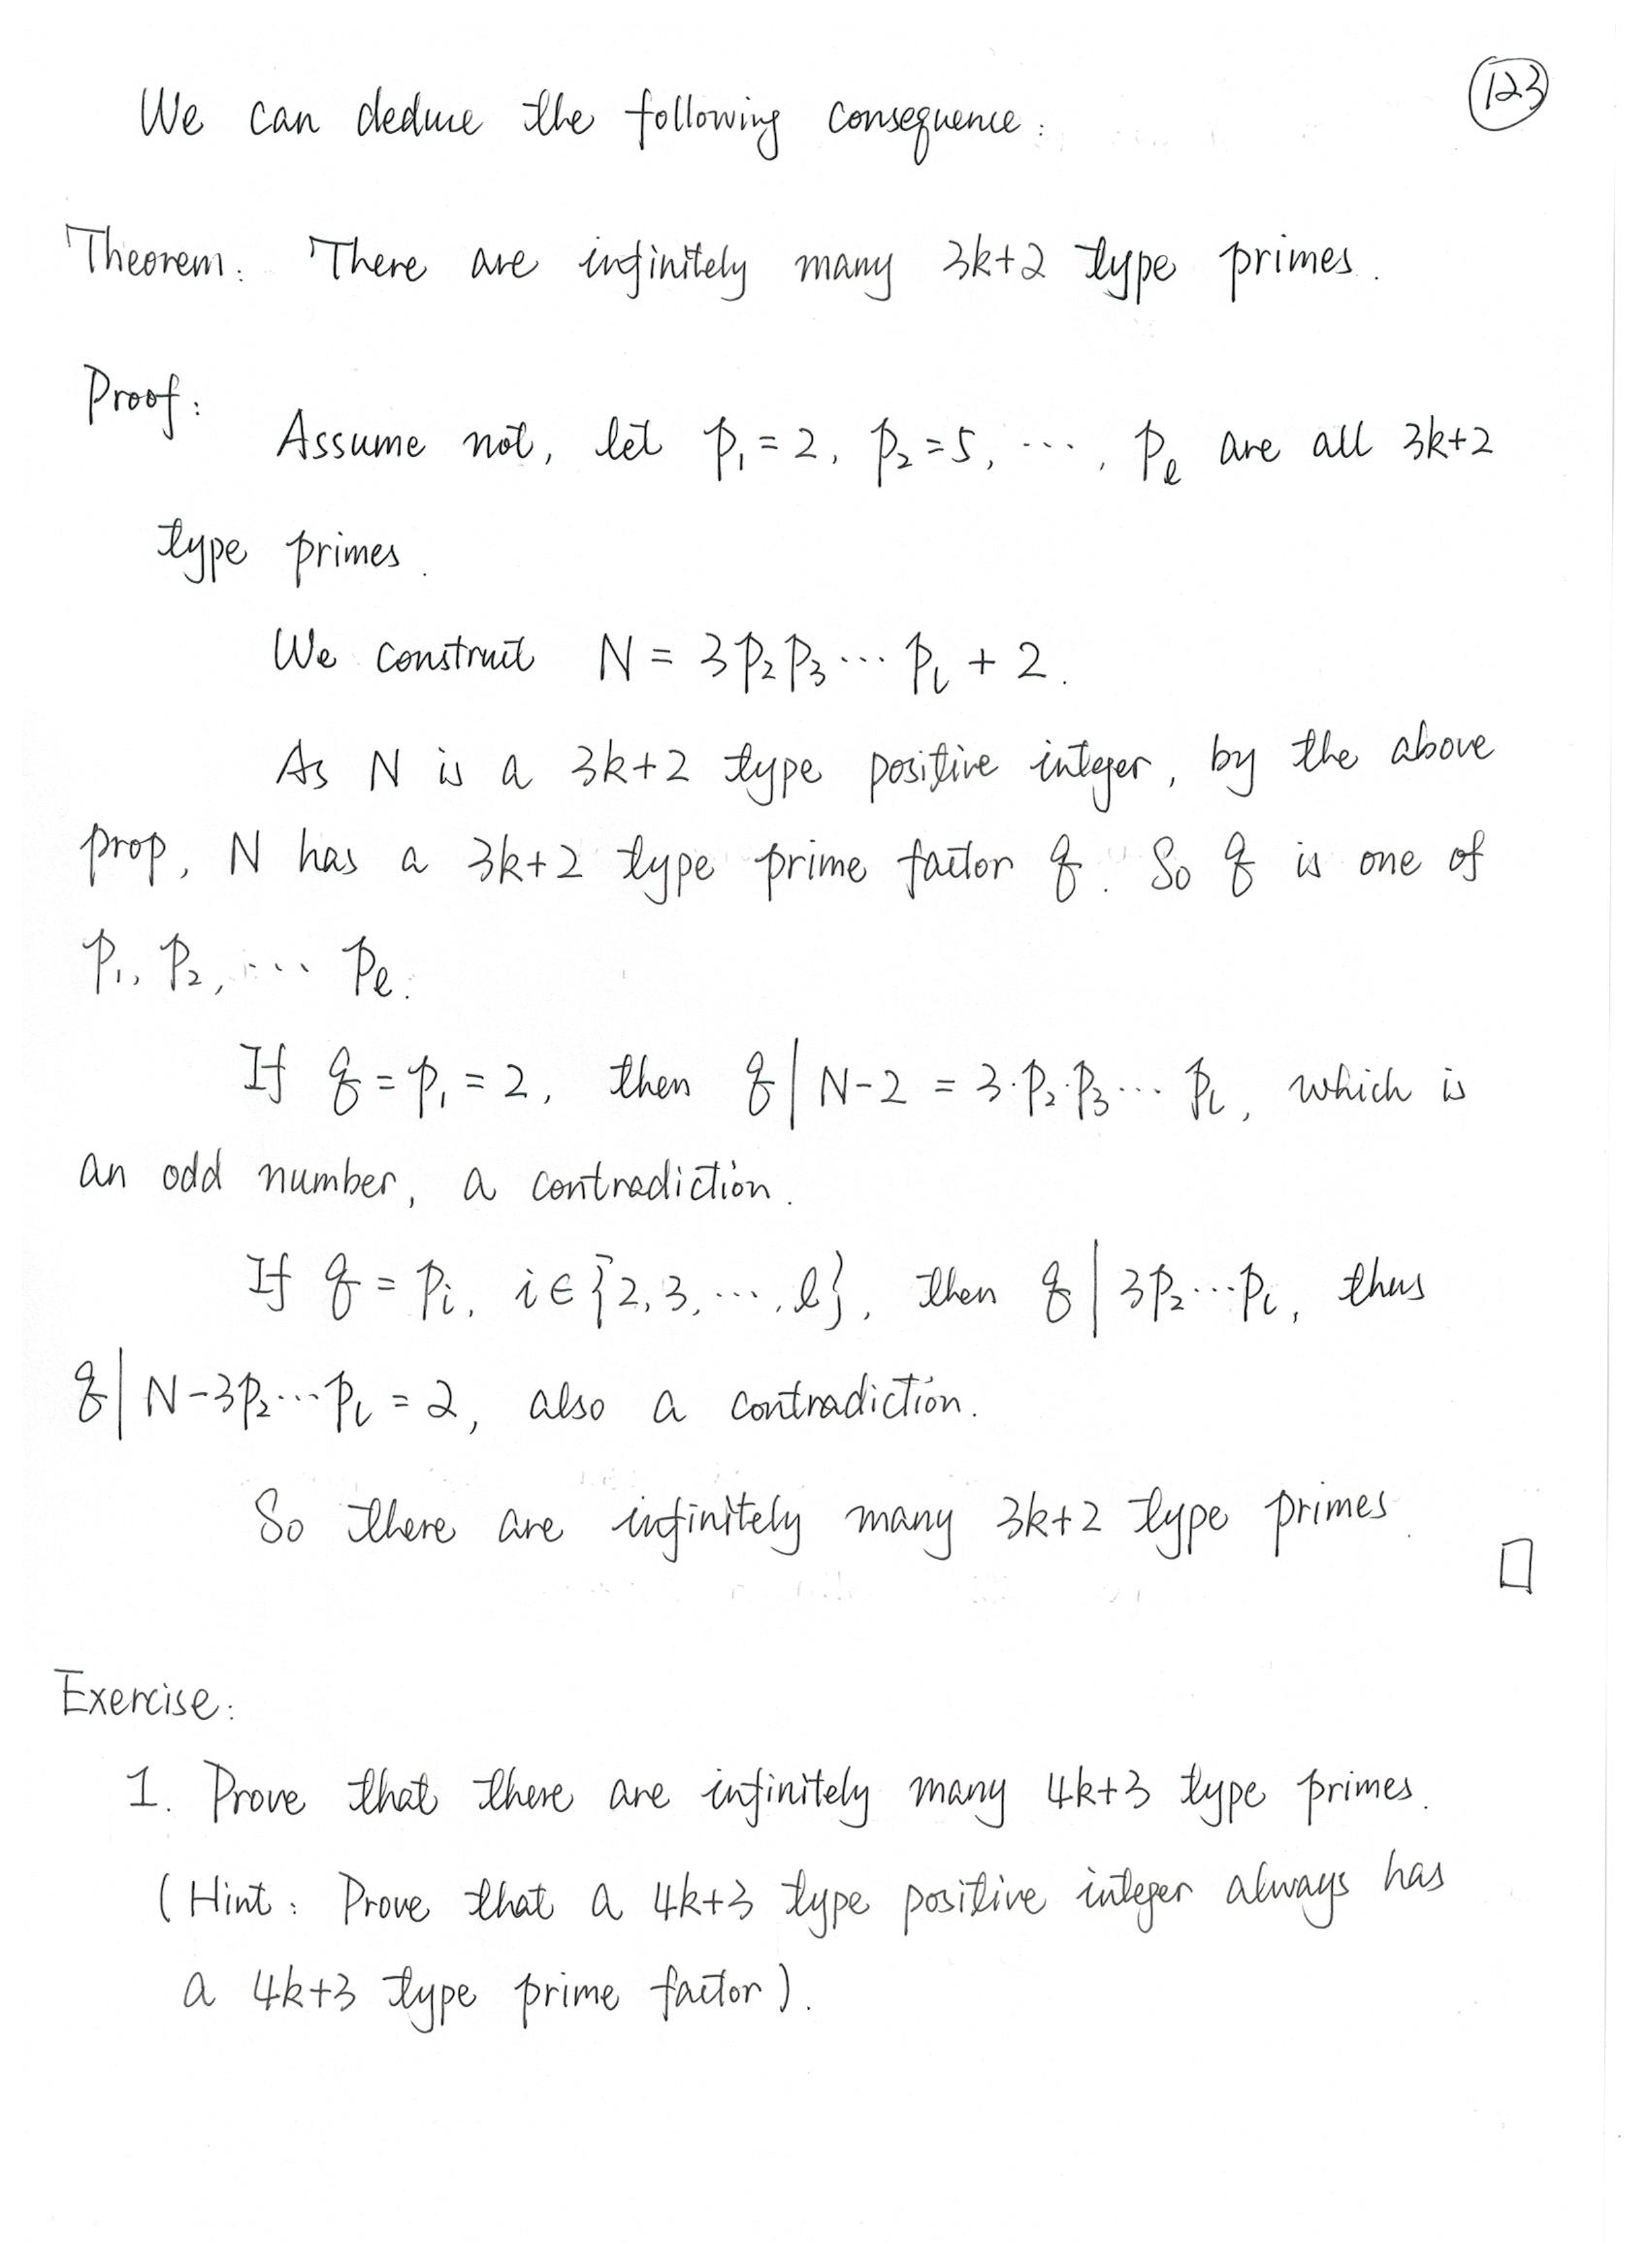 123
We can deduce the following consequence:
Theorem: There are infinitely many 3k+2 type primes.
Proof:
Assume not, let p₁=2, p₂=5, ⋯, pₗ are all 3k+2
type primes.
We construct N = 3p₂p₃⋯pₗ + 2.
As N is a 3k+2 type positive integer, by the above
prop, N has a 3k+2 type prime factor q. So q is one of
p₁, p₂, ⋯ pₗ.
If q = p₁ = 2, then q | N-2 = 3·p₂·p₃⋯pₗ, which is
an odd number, a contradiction.
If q = pᵢ, i∈{2,3,⋯,l}, then q | 3p₂⋯pₗ, thus
q | N-3p₂⋯pₗ = 2, also a contradiction.
So there are infinitely many 3k+2 type primes.
□
Exercise:
1. Prove that there are infinitely many 4k+3 type primes.
(Hint: Prove that a 4k+3 type positive integer always has
a 4k+3 type prime factor).